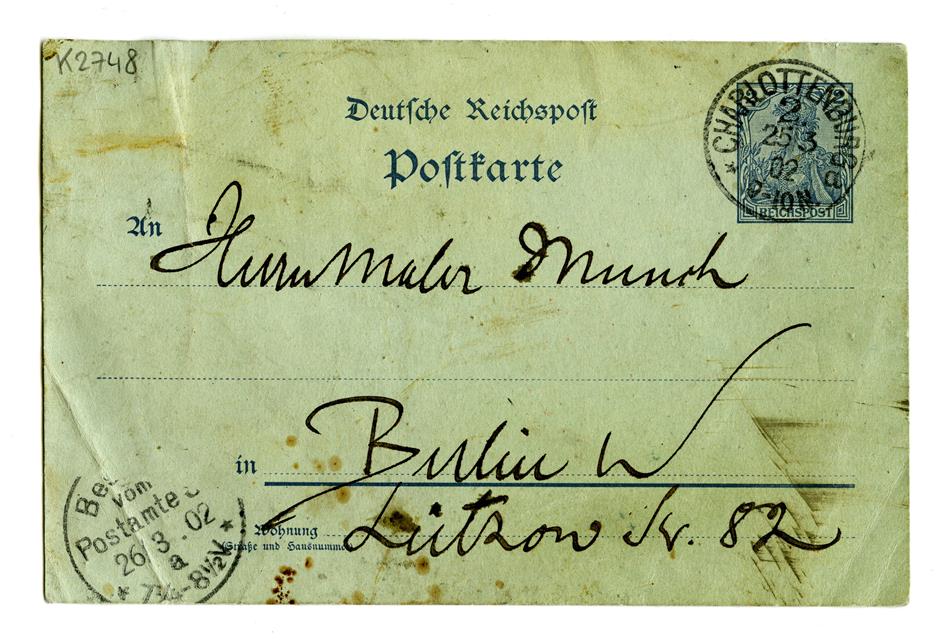 K2748
Deutsche Reichspost
Postkarte
CHARLOTTENBURG
2
25 3
02
9-10N.
REICHSPOST
An Herrn Maler Munch
in Berlin W
Wohnung
(Straße und Hausnummer
Lützow Str. 82
vom
Postamte
26.3.02
a
7¼-8½V.